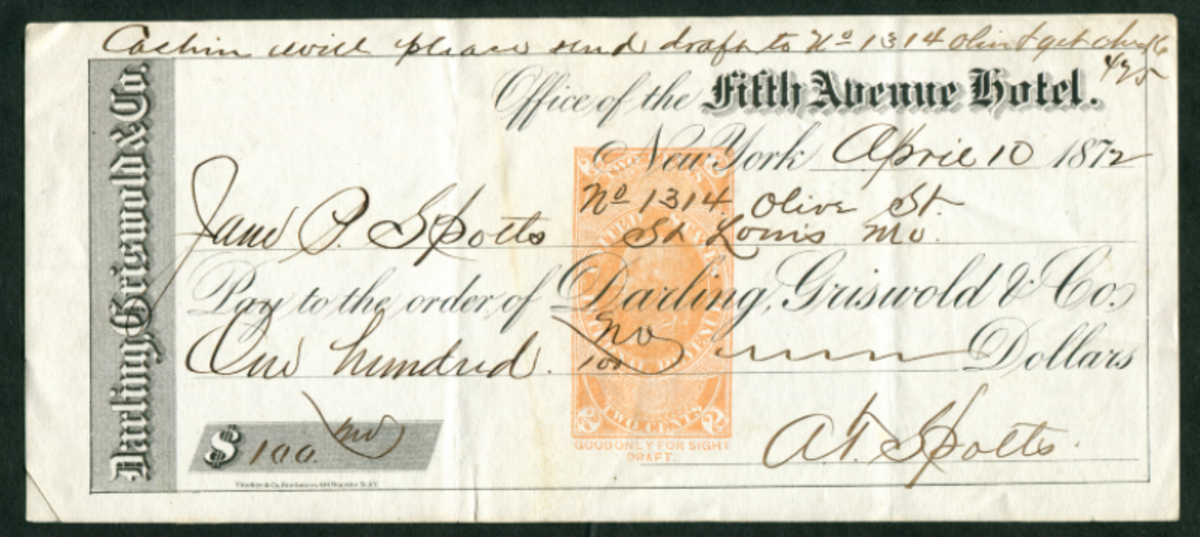 Cashier will please send draft to No 1314 Olive & get check
Office of the Fifth Avenue Hotel.
New York April 10 1872
No 1314 Olive St.
Jane P. Spotts St Louis Mo.
Pay to the order of Darling, Griswold & Co.
One hundred no/100 Dollars
$ 100. no
A.T. Spotts
Darling, Griswold & Co.
TWO CENTS
GOOD ONLY FOR SIGHT
DRAFT.